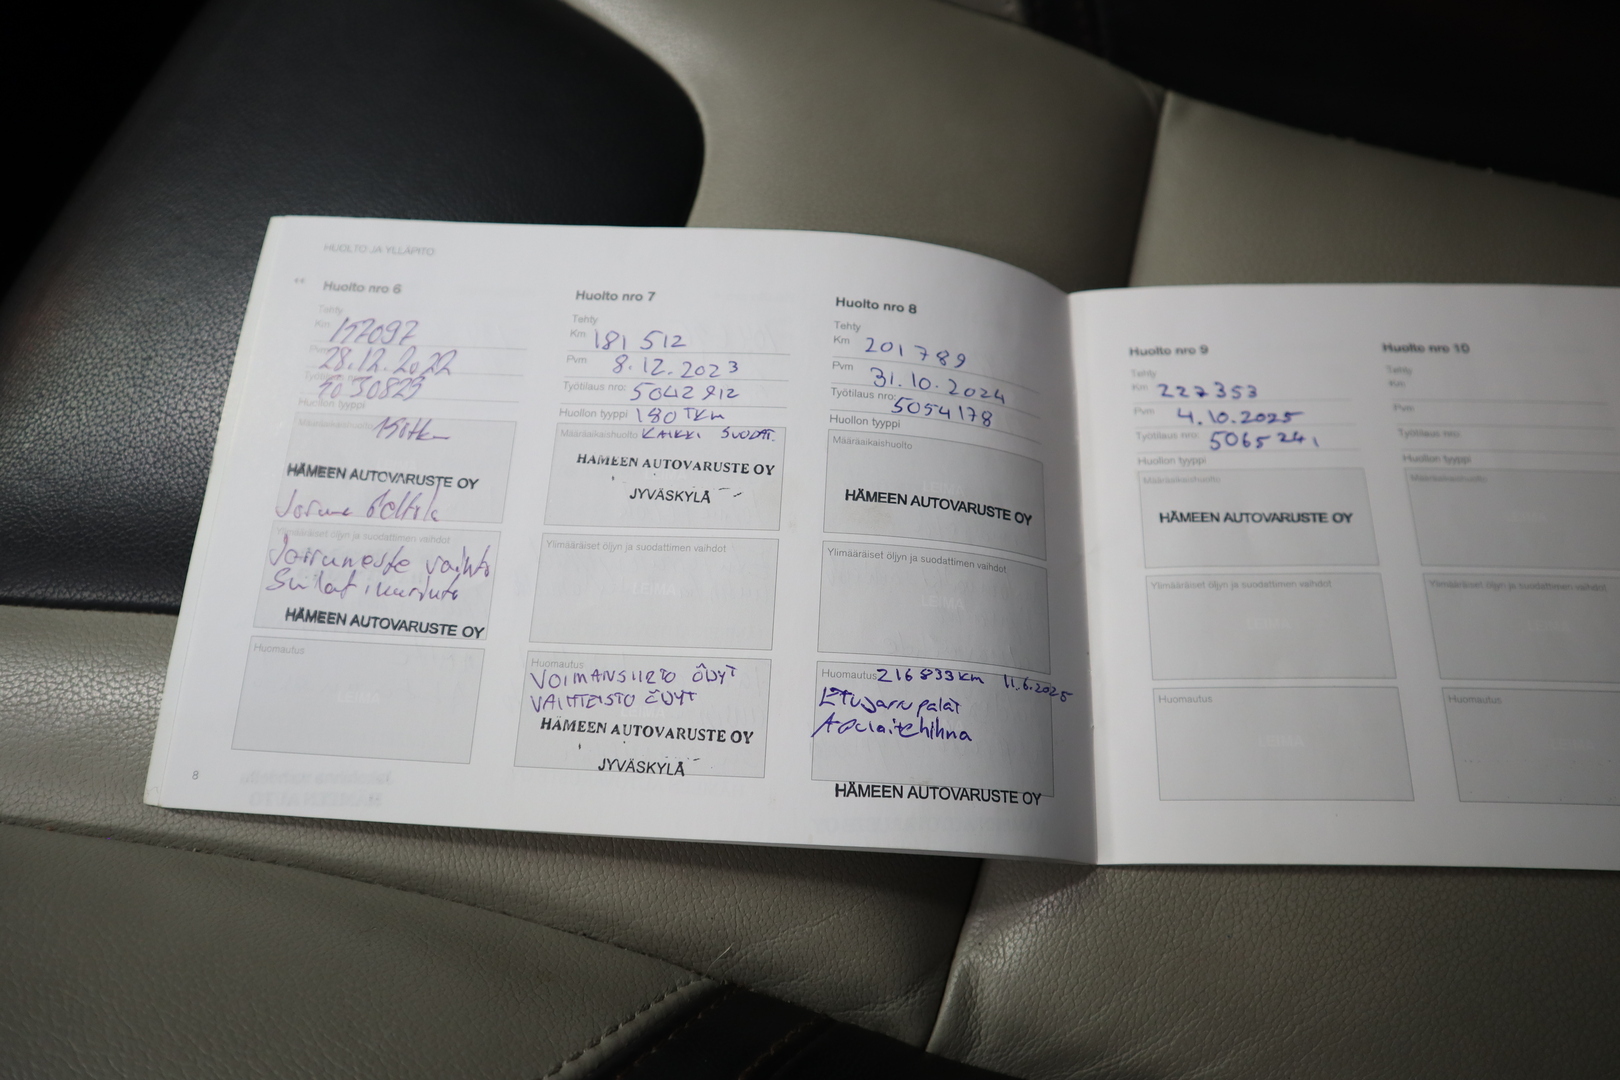 HUOLTO JA YLLÄPITO
Huolto nro 6
Tehty
Km 157097
Pvm 28.12.2022
5030829
Huollon tyyppi
Määräaikaishuolto 150tkm
HÄMEEN AUTOVARUSTE OY
Ylimääräiset öljyn ja suodattimen vaihdot
Jarruneste vaihto
HÄMEEN AUTOVARUSTE OY
Huomautus
LEIMA
8
Huolto nro 7
Tehty
Km 181 512
Pvm 8.12.2023
Työtilaus nro: 5042812
Huollon tyyppi 180 TKM
Määräaikaishuolto KAIKKI SUODAT.
HÄMEEN AUTOVARUSTE OY
JYVÄSKYLÄ
Ylimääräiset öljyn ja suodattimen vaihdot
LEIMA
Huomautus
VOIMANSIIRTO ÖLJYT
VAIHTEISTO ÖLJYT
HÄMEEN AUTOVARUSTE OY
JYVÄSKYLÄ
Huolto nro 8
Tehty
Km 201789
Pvm 31.10.2024
Työtilaus nro: 5054178
Huollon tyyppi
Määräaikaishuolto
LEIMA
HÄMEEN AUTOVARUSTE OY
Ylimääräiset öljyn ja suodattimen vaihdot
LEIMA
Huomautus 216833km 11.6.2025
Etujarrupalat
Apulaitehihna
HÄMEEN AUTOVARUSTE OY
Huolto nro 9
Tehty
Km 227353
Pvm 4.10.2025
Työtilaus nro: 5065241
Huollon tyyppi
Määräaikaishuolto
HÄMEEN AUTOVARUSTE OY
Ylimääräiset öljyn ja suodattimen vaihdot
LEIMA
Huomautus
LEIMA
Huolto nro 10
Tehty
Km
Pvm
Työtilaus nro:
Huollon tyyppi
Määräaikaishuolto
LEIMA
Ylimääräiset öljyn ja suodattimen vaihdot
LEIMA
Huomautus
LEIMA